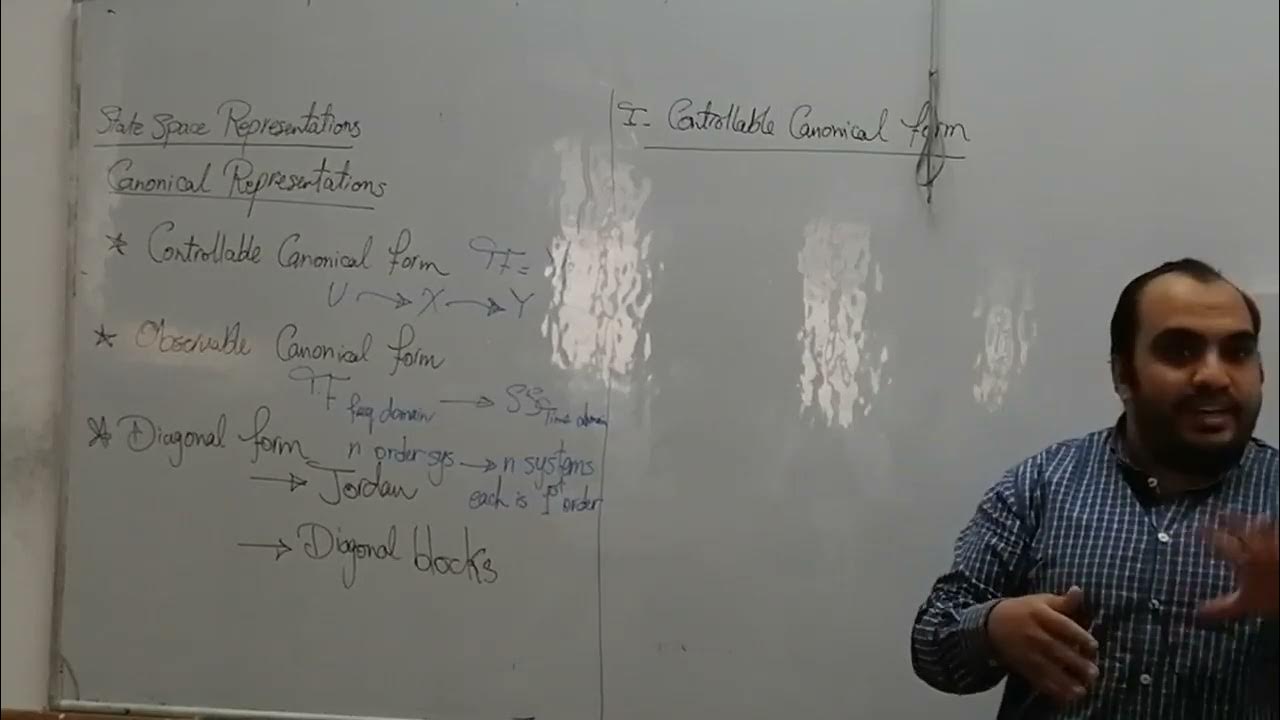 State Space Representations
Canonical Representations
* Controllable Canonical form TF =
U → X → Y
* Observable Canonical form
TF freq domain → SS Time domain
* Diagonal form n order sys → n systems
→ Jordan each is 1st order
→ Diagonal blocks
I- Controllable Canonical form